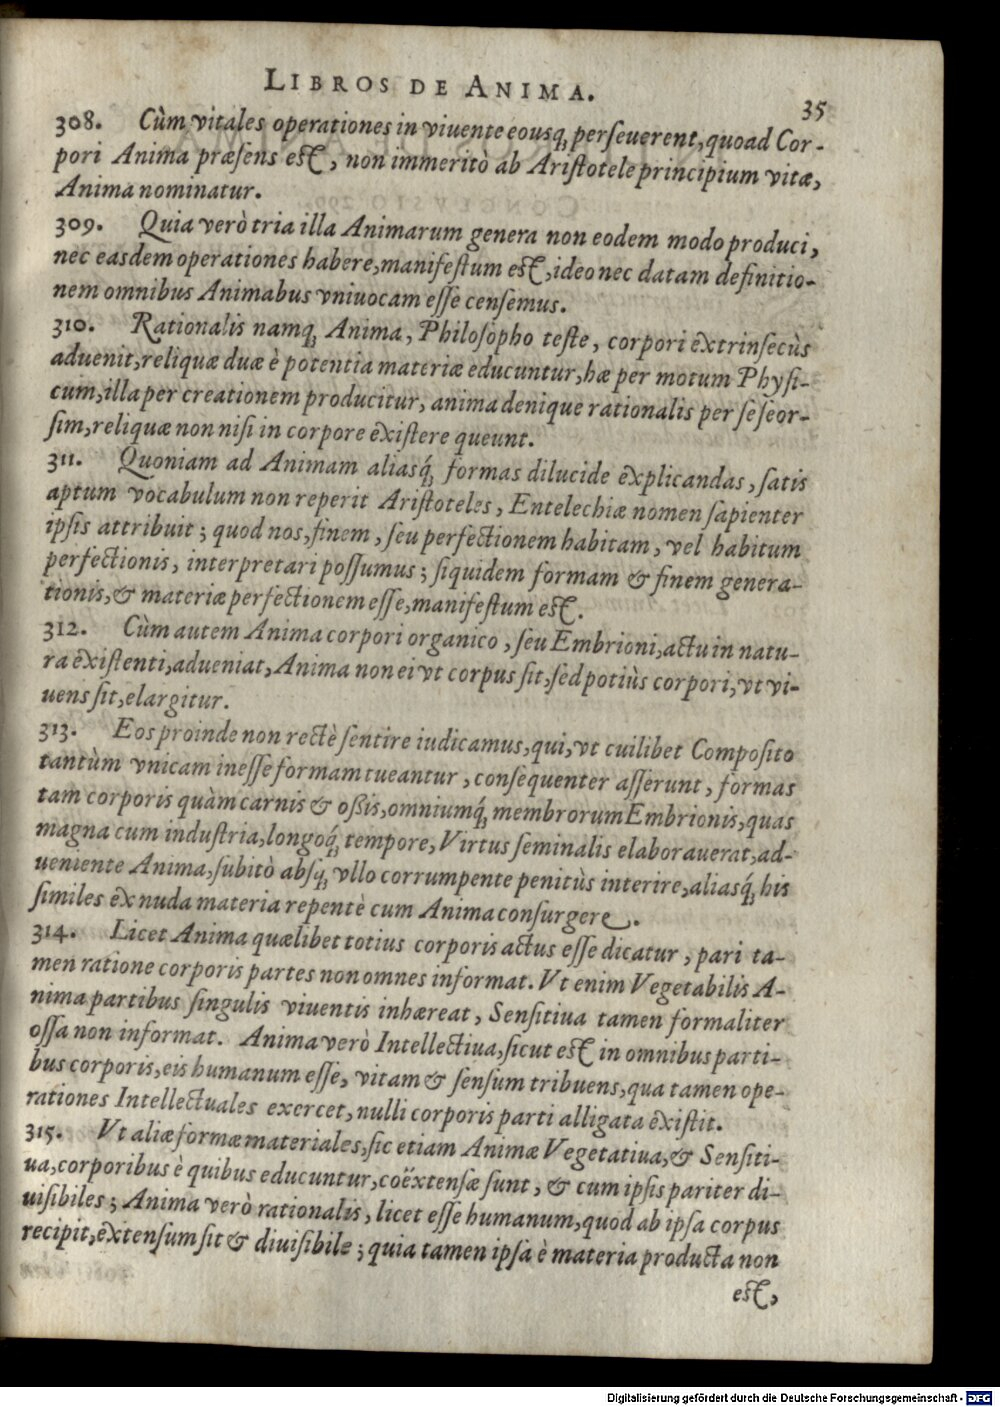 LIBROS DE ANIMA.
35
308. Cùm vitales operationes in viuente eousq́ perseuerent, quoad Cor-
pori Anima præsens est, non immeritò ab Aristotele principium vitæ,
Anima nominatur.
309. Quia verò tria illa Animarum genera non eodem modo produci,
nec easdem operationes habere, manifestum est, ideo nec datam definitio-
nem omnibus Animabus vniuocam esse censemus.
310. Rationalis namq́ Anima, Philosopho teste, corpori extrinsecùs
aduenit, reliquæ duæ è potentia materiæ educuntur, hæ per motum Physi-
cum, illa per creationem producitur, anima denique rationalis per se seor-
sim, reliquæ non nisi in corpore existere queunt.
311. Quoniam ad Animam aliasq́ formas dilucide explicandas, satis
aptum vocabulum non reperit Aristoteles, Entelechiæ nomen sapienter
ipsis attribuit; quod nos, finem, seu perfectionem habitam, vel habitum
perfectionis, interpretari possumus; siquidem formam & finem genera-
tionis, & materiæ perfectionem esse, manifestum est.
312. Cùm autem Anima corpori organico, seu Embrioni, actu in natu-
ra existenti, adueniat, Anima non ei vt corpus sit, sed potiùs corpori, vt vi-
uens sit, elargitur.
313. Eos proinde non rectè sentire iudicamus, qui, vt cuilibet Composito
tantùm vnicam inesse formam tueantur, consequenter asserunt, formas
tam corporis quàm carnis & oßis, omniumq́ membrorum Embrionis, quas
magna cum industria, longoq́ tempore, Virtus seminalis elaborauerat, ad-
ueniente Anima, subitò absq́ vllo corrumpente penitùs interire, aliasq́ his
similes ex nuda materia repentè cum Anima consurgere.
314. Licet Anima quælibet totius corporis actus esse dicatur, pari ta-
men ratione corporis partes non omnes informat. Vt enim Vegetabilis A-
nima partibus singulis viuentis inhæreat, Sensitiua tamen formaliter
ossa non informat. Anima verò Intellectiua, sicut est in omnibus parti-
bus corporis, eis humanum esse, vitam & sensum tribuens, qua tamen ope-
rationes Intellectuales exercet, nulli corporis parti alligata existit.
315. Vt aliæ formæ materiales, sic etiam Animæ Vegetatiua, & Sensiti-
ua, corporibus è quibus educuntur, coëxtensæ sunt, & cum ipsis pariter di-
uisibiles; Anima verò rationalis, licet esse humanum, quod ab ipsa corpus
recipit, extensum sit & diuisibile; quia tamen ipsa è materia producta non
est,
Digitalisierung gefördert durch die Deutsche Forschungsgemeinschaft - DFG